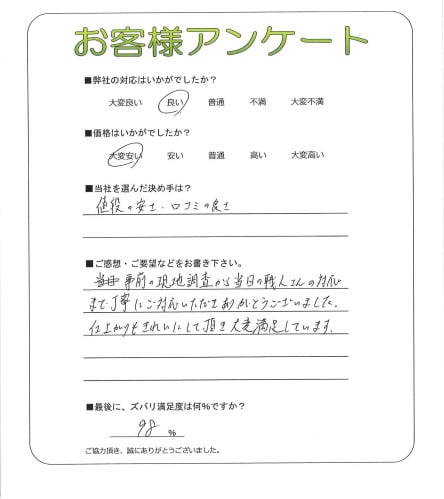 お客様アンケート
■弊社の対応はいかがでしたか?
大変良い 良い 普通 不満 大変不満
■価格はいかがでしたか?
大変安い 安い 普通 高い 大変高い
■当社を選んだ決め手は?
値段の安さ・口コミの良さ
■ご感想・ご要望などをお書き下さい。
事前の現地調査から当日の職人さんの対応
まで丁寧にご対応いただきありがとうございました。
仕上がりもきれいにして頂き大変満足しています。
■最後に、ズバリ満足度は何%ですか?
98 %
ご協力頂き、誠にありがとうございました。